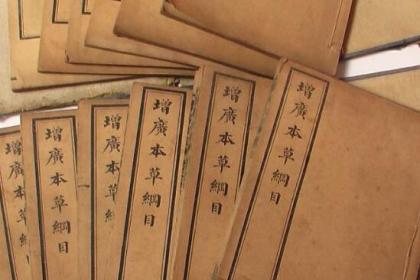 增廣本草綱目
增廣本草綱目
增廣本草綱
增廣本草綱目
增廣本草綱目
增廣本草綱目